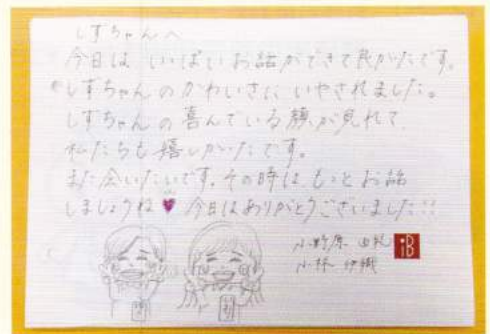 しずちゃんへ
今日は いっぱい お話ができて良かったです。
しずちゃんのかわいさに いやされました。
しずちゃんの喜んでいる顔が見れて
私たちも嬉しかったです。
また会いたいです。その時は、もっとお話
しましょうね 今日はありがとうございました!!
小野原
小林
iB